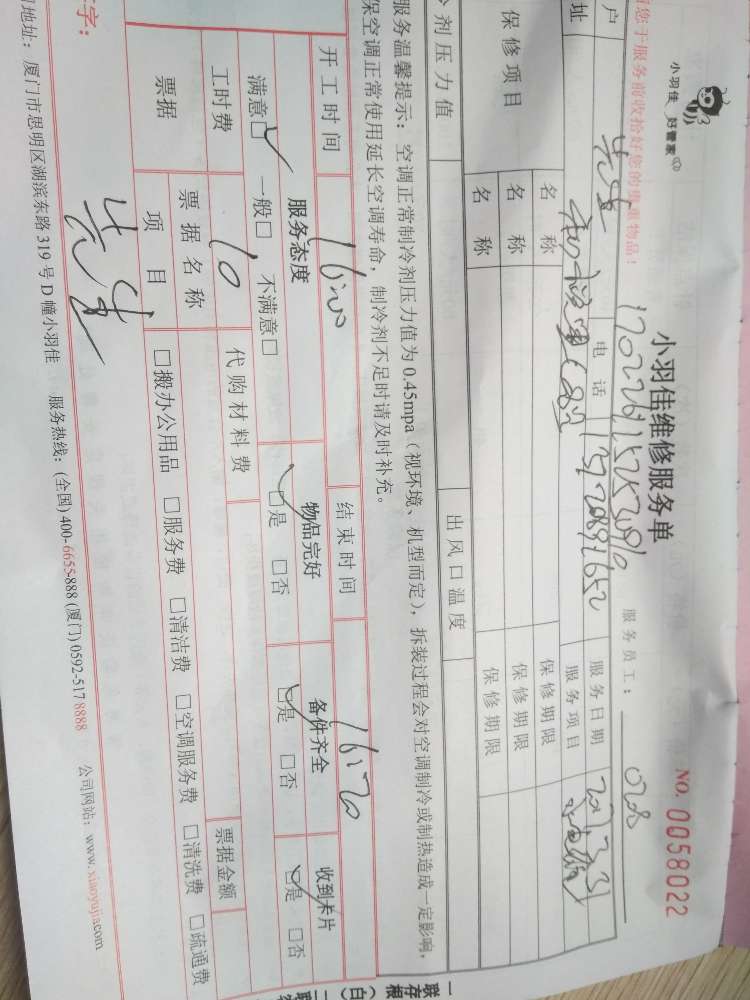 小羽佳 好管家
小羽佳维修服务单
NO. 0058022
请您于服务前收拾好您的贵重物品！
服务员工：
户 先生 电话 服务日期
址 服务项目
保修项目 名称 保修期限
名称 保修期限
名称 保修期限
冷剂压力值 出风口温度
服务温馨提示：空调正常制冷剂压力值为 0.45mpa（视环境、机型而定），拆装过程会对空调制冷或制热造成一定影响，
保空调正常使用延长空调寿命，制冷剂不足时请及时补充。
开工时间 16:00 结束时间 16:20
服务态度 物品完好 备件齐全 收到卡片
满意☑ 一般□ 不满意□ ☑是 □否 ☑是 □否 ☑是 □否
工时费 10 代购材料费
票据 票据名称 票据金额
项目 □搬办公用品 □服务费 □清洁费 □空调服务费 □清洗费 □疏通费
字： 先生
司地址：厦门市思明区湖滨东路 319 号 D 幢小羽佳 服务热线：(全国) 400-6655-888 (厦门) 0592-517 8888 公司网站：www.xiaoyujia.com